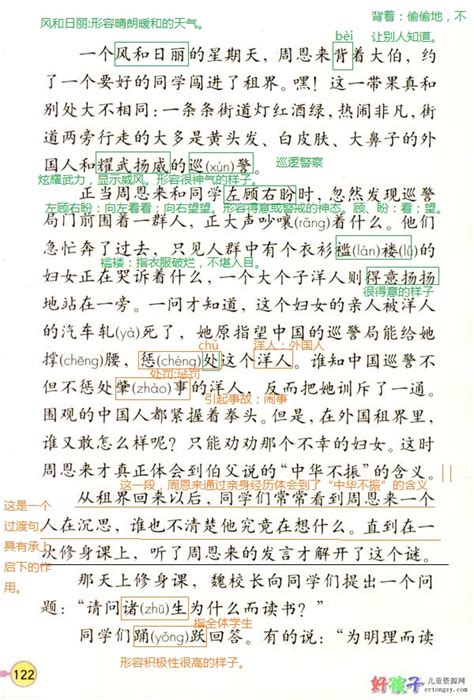 风和日丽:形容晴朗暖和的天气。
背着：偷偷地，不
bèi 让别人知道。
一个风和日丽的星期天，周恩来背着大伯，约
了一个要好的同学闯进了租界。嘿！这一带果真和
别处大不相同：一条条街道灯红酒绿，热闹非凡，街
道两旁行走的大多是黄头发、白皮肤、大鼻子的外
国人和耀武扬威的巡(xún)警。 巡逻警察
炫耀武力，显示威风。形容很神气的样子。
正当周恩来和同学左顾右盼时，忽然发现巡警
左顾右盼：向左看看；向右望望。形容得意或警戒的神态。顾、盼：看；望。
局门前围着一群人，正大声吵嚷(rǎng)着什么。他们
急忙奔了过去，只见人群中有个衣衫褴(lán)褛(lǚ)的
褴褛：指衣服破烂，不堪入目。
妇女正在哭诉着什么，一个大个子洋人则得意扬扬
很得意的样子
地站在一旁。一问才知道，这个妇女的亲人被洋人
的汽车轧(yà)死了，她原指望中国的巡警局能给她
chǔ 洋人：外国人
撑(chēng)腰，惩(chéng)处这个洋人。谁知中国巡警不
处罚;惩罚
但不惩处肇(zhào)事的洋人，反而把她训斥了一通。
引起事故；闹事
围观的中国人都紧握着拳头。但是，在外国租界里，
谁又敢怎么样呢？只能劝劝那个不幸的妇女。这时
周恩来才真正体会到伯父说的“中华不振”的含义。
这一段，周恩来通过亲身经历体会到了“中华不振”的含义
从租界回来以后，同学们常常看到周恩来一个
人在沉思，谁也不清楚他究竟在想什么。直到在一
次修身课上，听了周恩来的发言才解开了这个谜。
这是一个
过渡句，
具有承上
启下的作
用。
那天上修身课，魏校长向同学们提出一个问
题：“请问诸(zhū)生为什么而读书？”
指全体学生
同学们踊(yǒng)跃回答。有的说：“为明理而读
形容积极性很高的样子。
122
好孩子 儿童资源网
ertongzy.com